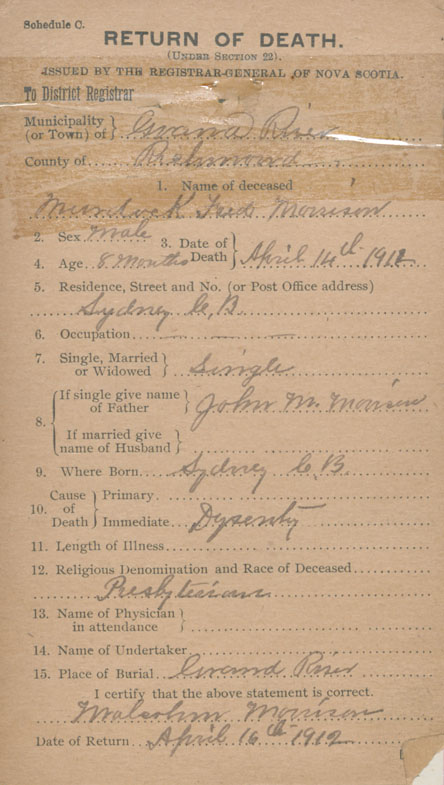 Schedule C.
RETURN OF DEATH.
(UNDER SECTION 22).
ISSUED BY THE REGISTRAR-GENERAL OF NOVA SCOTIA.
To District Registrar
Municipality (or Town) of } Grand River
County of Richmond
1. Name of deceased
Murdock Fred Morrison
2. Sex Male 3. Date of Death } April 14th 1912
4. Age 8 Months
5. Residence, Street and No. (or Post Office address)
Sydney C. B.
6. Occupation
7. Single, Married or Widowed } Single
8. { If single give name of Father } John M. Morrison
If married give name of Husband }
9. Where Born Sydney C. B.
10. Cause of Death } Primary
Immediate Dysentry
11. Length of Illness
12. Religious Denomination and Race of Deceased
Presbyterian
13. Name of Physician in attendance }
14. Name of Undertaker
15. Place of Burial Grand River
I certify that the above statement is correct.
Malcolm Morrison
Date of Return April 16th 1912